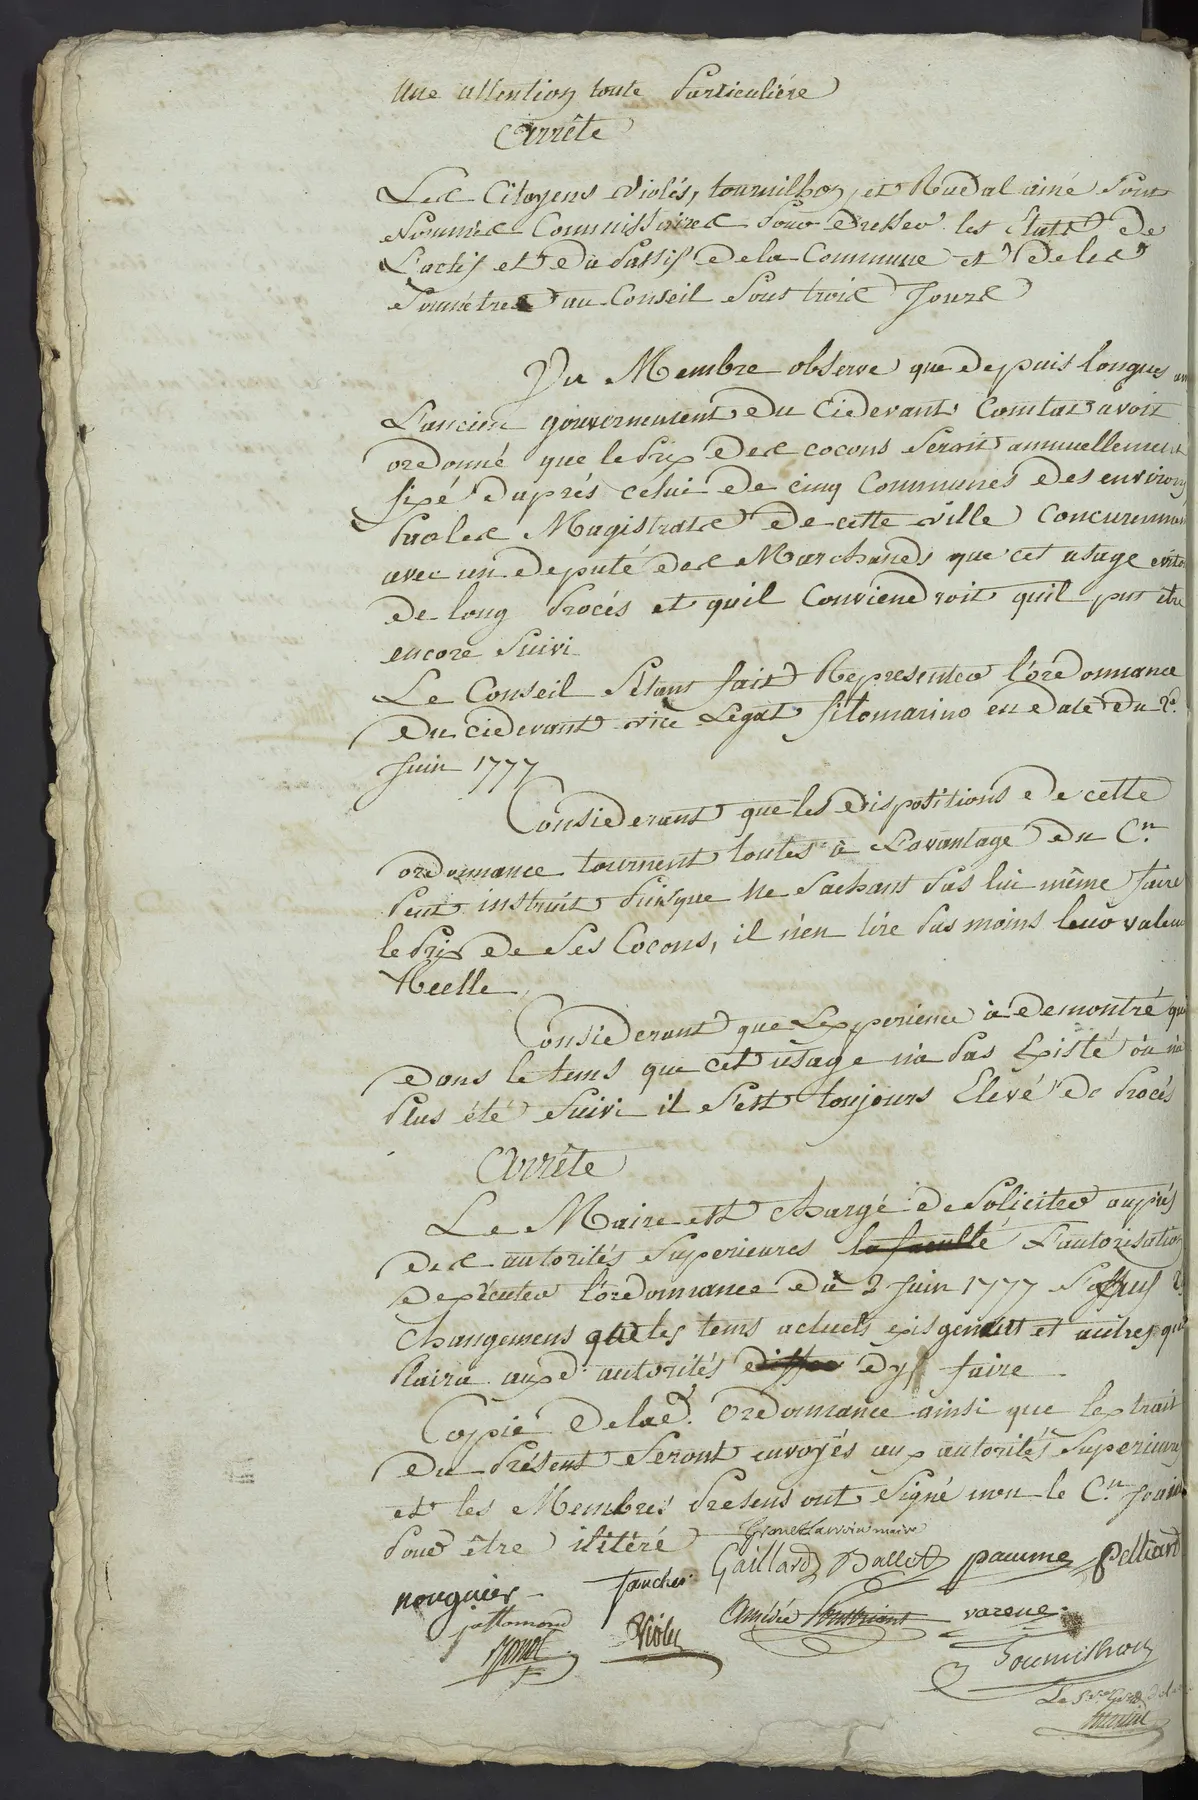 une attention toute particuliére
Arrête
Les Citoyens violés, tournilhon, et Rudal ainé sont
Nommés Commissaires pour dresser les États de
L'actif et du passif de la Commune et de les
soumêtres au Conseil sous trois jours
Un Membre observe que depuis longues
L'ancien gouvernement du cidevant Comtat avoit
ordonné que le prix des cocons seroit annuellement
fixé d'aprés celui de cinq Communes des environs
par les Magistrats de cette ville concurement
avec un deputé des Marchands que cet usage
de long procés et quil conviendroit quil put être
encore suivi
Le Conseil s'étant fait Representer l'ordonnance
du cidevant vice Legat filomarino en date du 2.d
Juin 1777
Considerant que les dispositions de cette
ordonnance tournent toutes à L'avantage du C.en
peut instruit puisque ne sachant pas lui même faire
le prix de ses Cocons, il n'en tire pas moins leur valeur
Réelle
Considerant que L'experience à demontré que
dans le tems que cet usage n'a pas Existé ou n'a
plus été suivi il s'est toujours Elevé de procés
Arrête
Le Maire est chargé de soliciter auprés
des autorités superieures la faculté L'autorisation
d'exécuter l'ordonnance du 2 juin 1777 sauf
changemens que les tems actuels exisgeroient et autres qui
plaira aux d. autorités dy faire
Copie de lad. ordonnance ainsi que lextrait
du présent seront envoyés aux autorités superieures
et les Membres presens ont signé non le C.en
pour être ilitéré
maire
Gaillard Dallet paume pelliard
nougnier faucher
jallamond Amédée varene
Violés
Tournilhon
Le